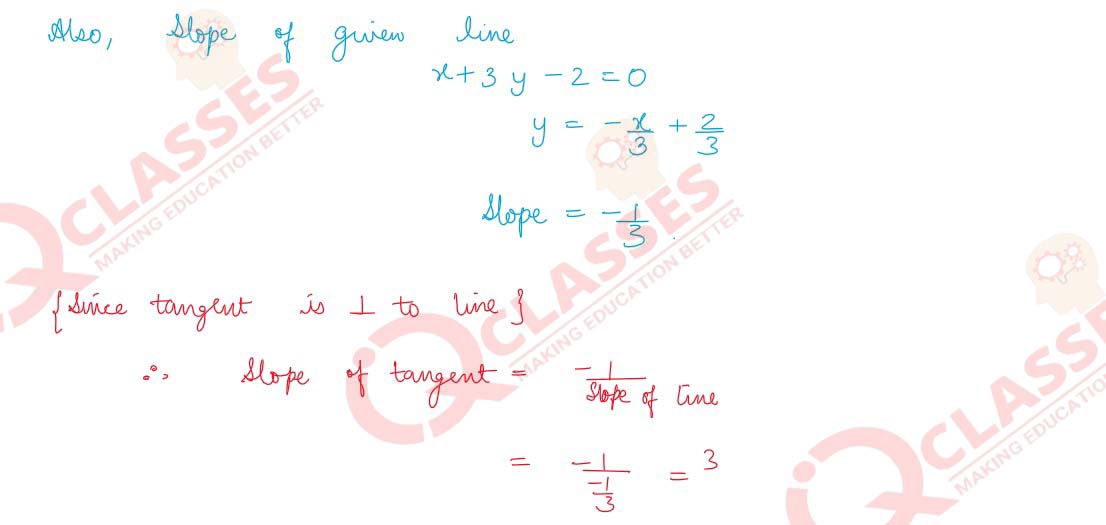 Also, Slope of given line
x + 3 y - 2 = 0
y = - x/3 + 2/3
Slope = - 1/3
{Since tangent is ⊥ to line}
∴ Slope of tangent = -1/Slope of line
= -1/(-1/3) = 3
QCLASSES
MAKING EDUCATION BETTER
QCLASSES
MAKING EDUCATION BETTER
QCLASSES
MAKING EDUCATION